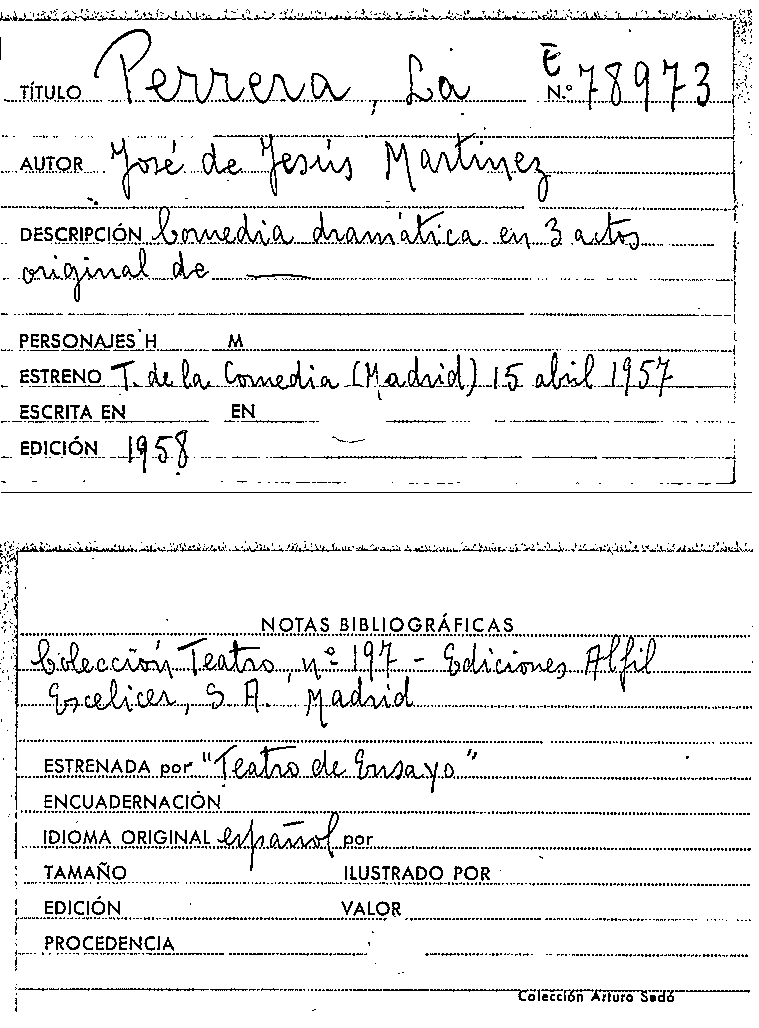 TÍTULO Perrera, La E N.º 78973
AUTOR José de Jesús Martínez
DESCRIPCIÓN Comedia dramática en 3 actos
original de ——
PERSONAJES H M
ESTRENO T. de la Comedia (Madrid) 15 abril 1957
ESCRITA EN EN
EDICIÓN 1958
NOTAS BIBLIOGRÁFICAS
Colección Teatro, nº 197 - Ediciones Alfil
Escelicer, S. A. Madrid
ESTRENADA por "Teatro de Ensayo"
ENCUADERNACIÓN
IDIOMA ORIGINAL español por
TAMAÑO ILUSTRADO POR
EDICIÓN VALOR
PROCEDENCIA
Colección Arturo Sedó